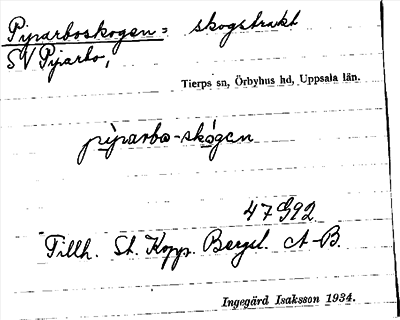 Pijparboskogen = skogstrakt
SV Pijparbo,
Tierps sn, Örbyhus hd, Uppsala län.
pìparbo-skógen
47992
Tillh. St. Kopp. Bergsl. A-B.
Ingegärd Isaksson 1934.